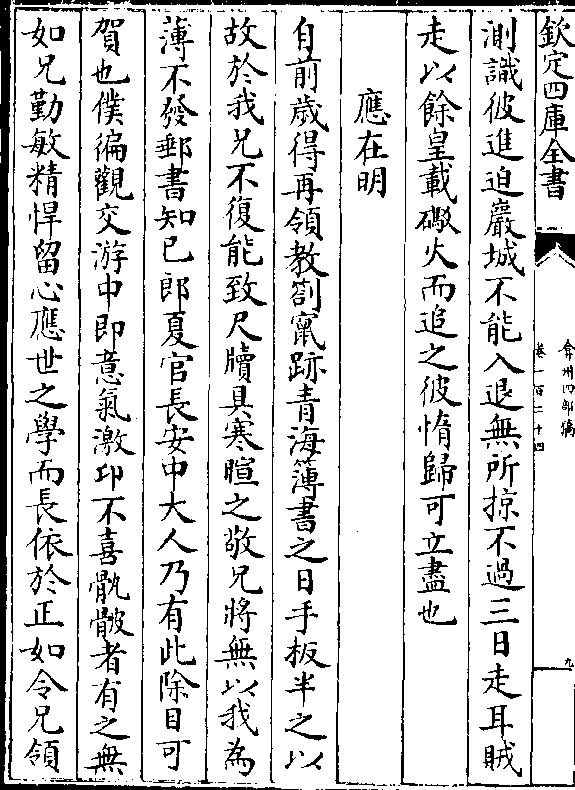 欽定四庫全書
弇州四部稿
卷一百二十四
九
測識彼進迫巖城不能入退無所掠不過三日走耳賊
走以餘皇載礮火而追之彼惰歸可立盡也
應在明
自前歲得再領教劄竄跡青海簿書之日手板半之以
故於我兄不復能致尺牘具寒暄之敬兄將無以我為
薄不發郵書知已郎夏官長安中大人乃有此除目可
賀也僕徧觀交游中即意氣激卬不喜骫骳者有之無
如兄勤敏精悍留心應世之學而長依於正如令兄領